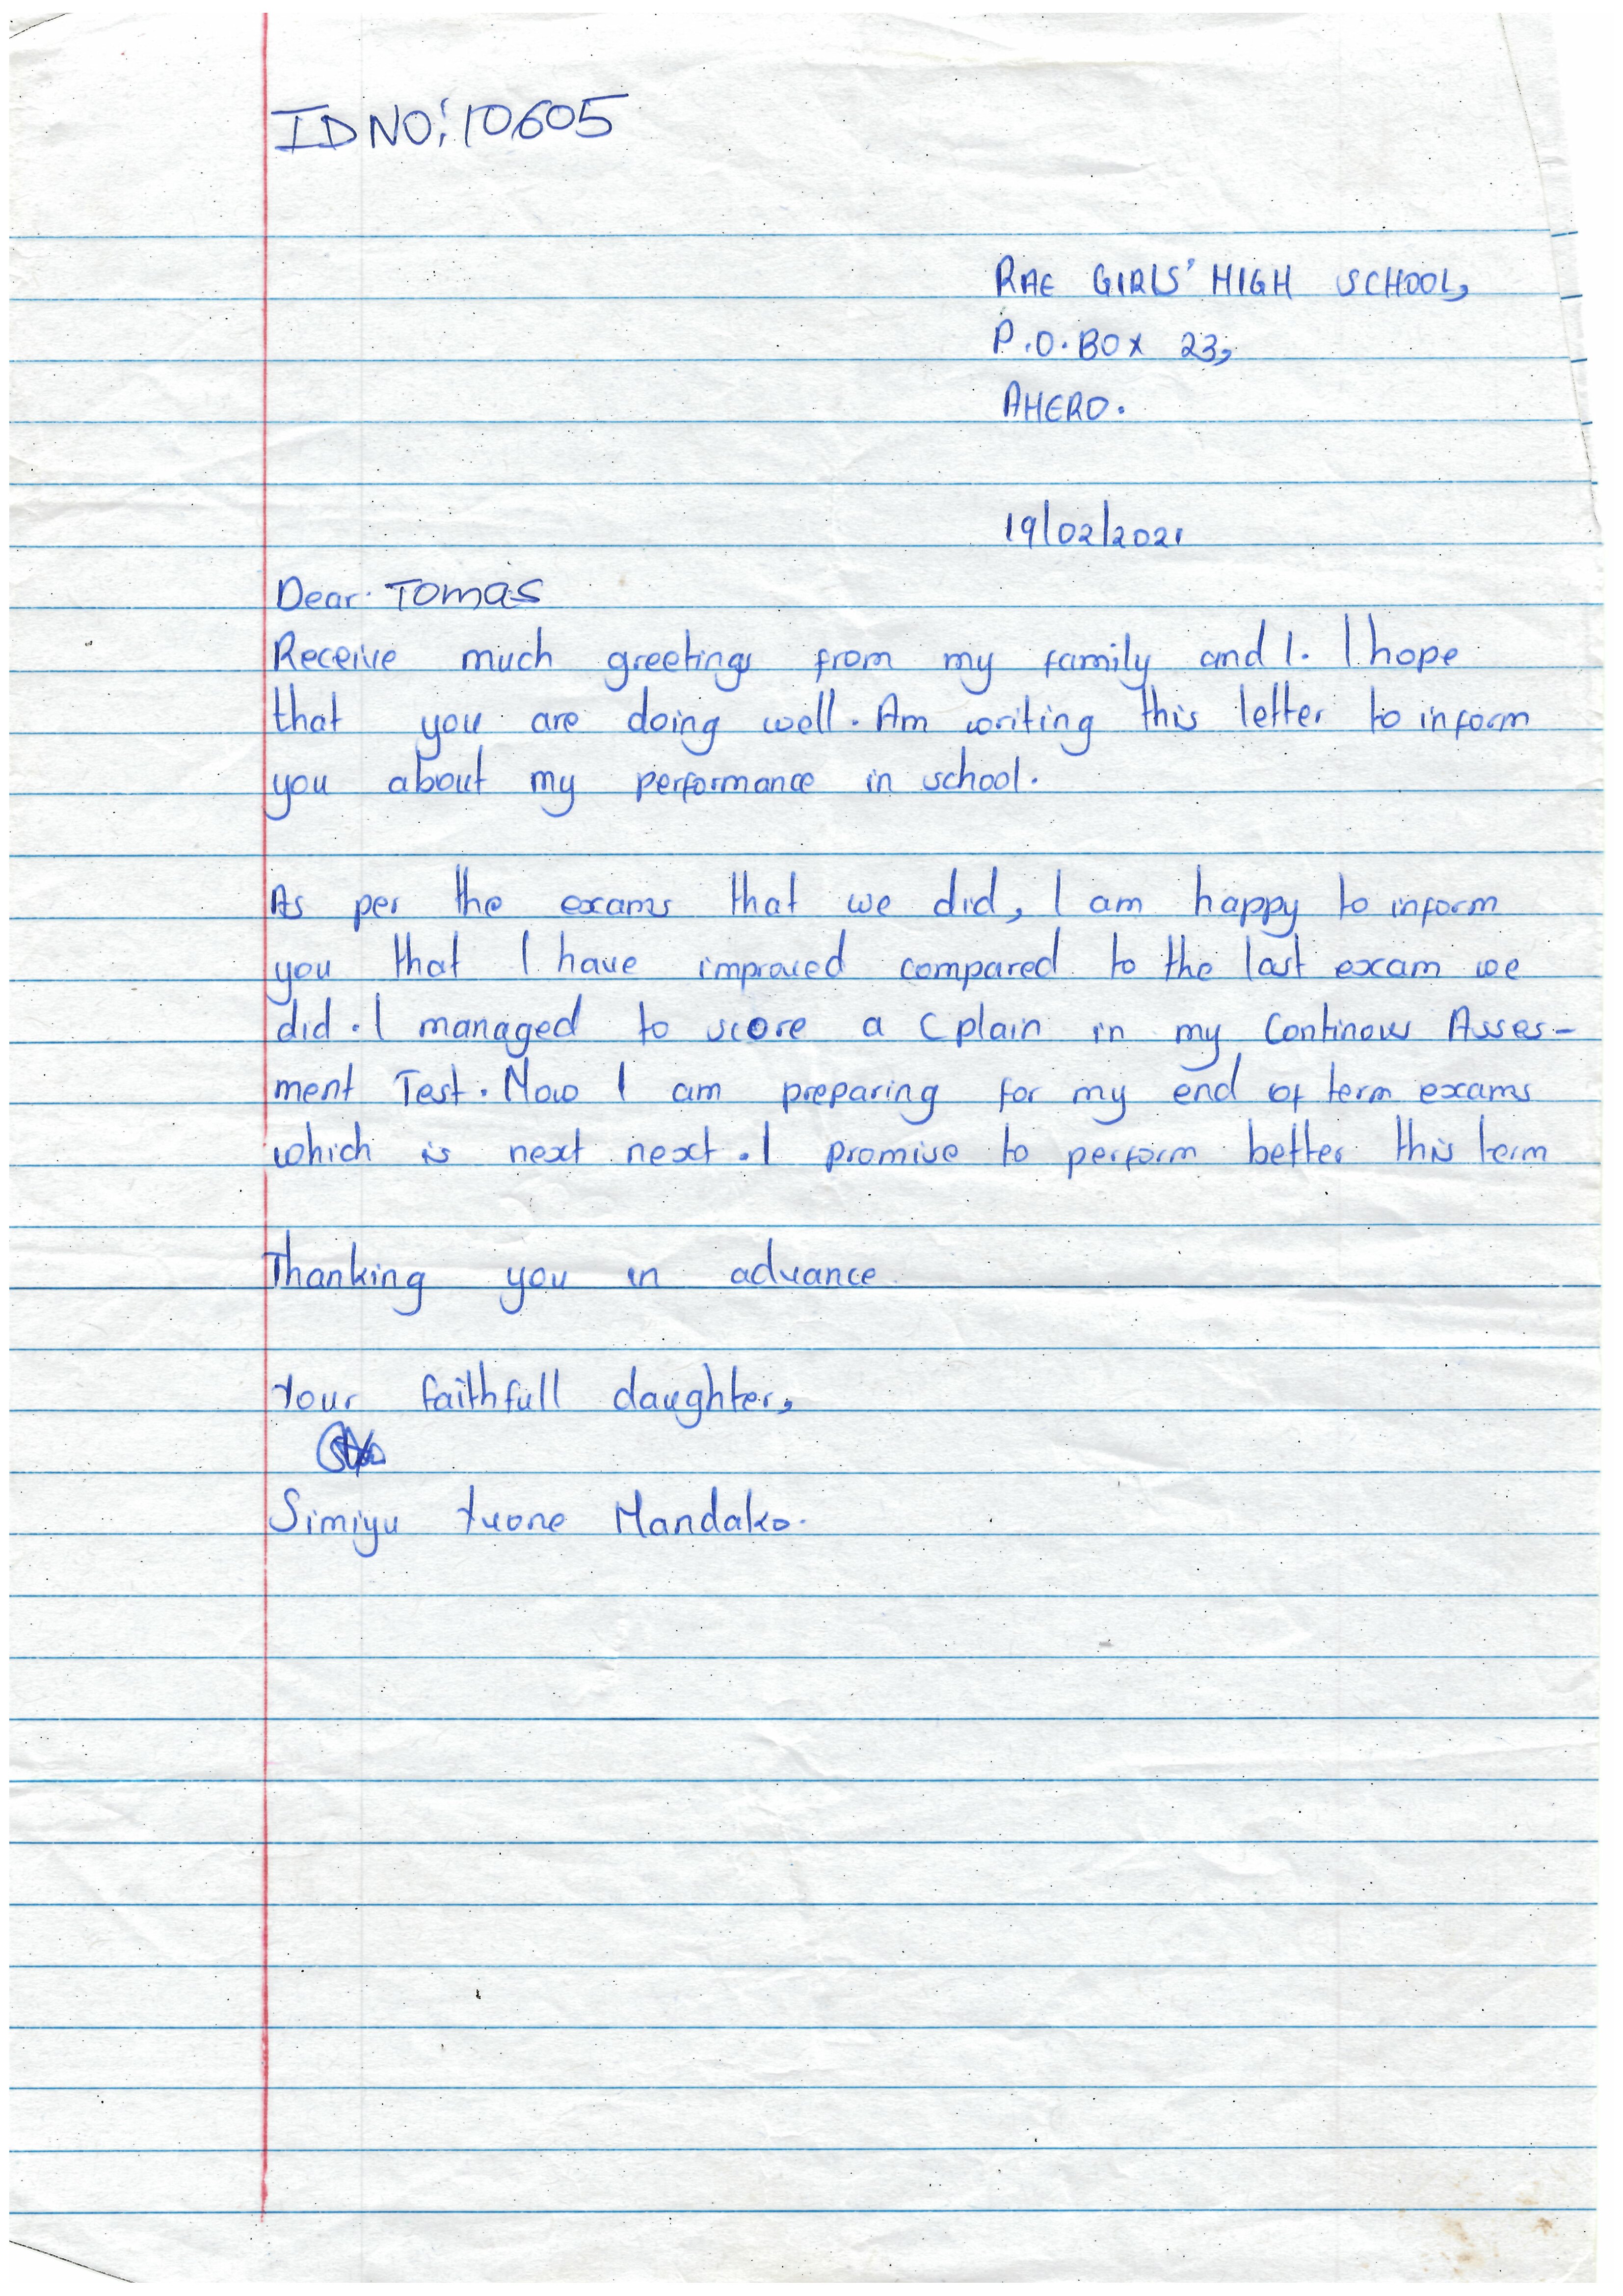 ID NO: 10605
RAE GIRLS' HIGH SCHOOL,
P.O. BOX 23,
AHERO.
19/02/2021
Dear Tomas
Receive much greetings from my family and I. I hope
that you are doing well. Am writing this letter to inform
you about my performance in school.
As per the exams that we did, I am happy to inform
you that I have improved compared to the last exam we
did. I managed to score a C plain in my Continous Asses-
ment Test. Now I am preparing for my end of term exams
which is next next. I promise to perform better this term
Thanking you in advance
Your faithfull daughter,
Simiyu Yvone Mandako.